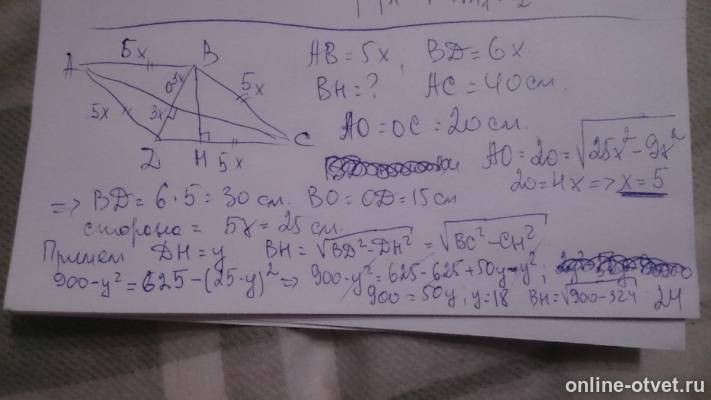 A 5x B
5x 3x O 5x
3x
D H 5x C
AB = 5x, BD = 6x
BH = ? AC = 40 см.
AO = OC = 20 см.
AO = 20 = √25x² - 9x²
20 = 4x => x = 5
=> BD = 6·5 = 30 см. BO = OD = 15 см
сторона = 5x = 25 см.
Примем DH = y BH = √BD² - DH² = √BC² - CH²
900 - y² = 625 - (25 - y)² => 900 - y² = 625 - 625 + 50y - y²;
900 = 50y, y = 18 BH = √900 - 324 24
online-otvet.ru